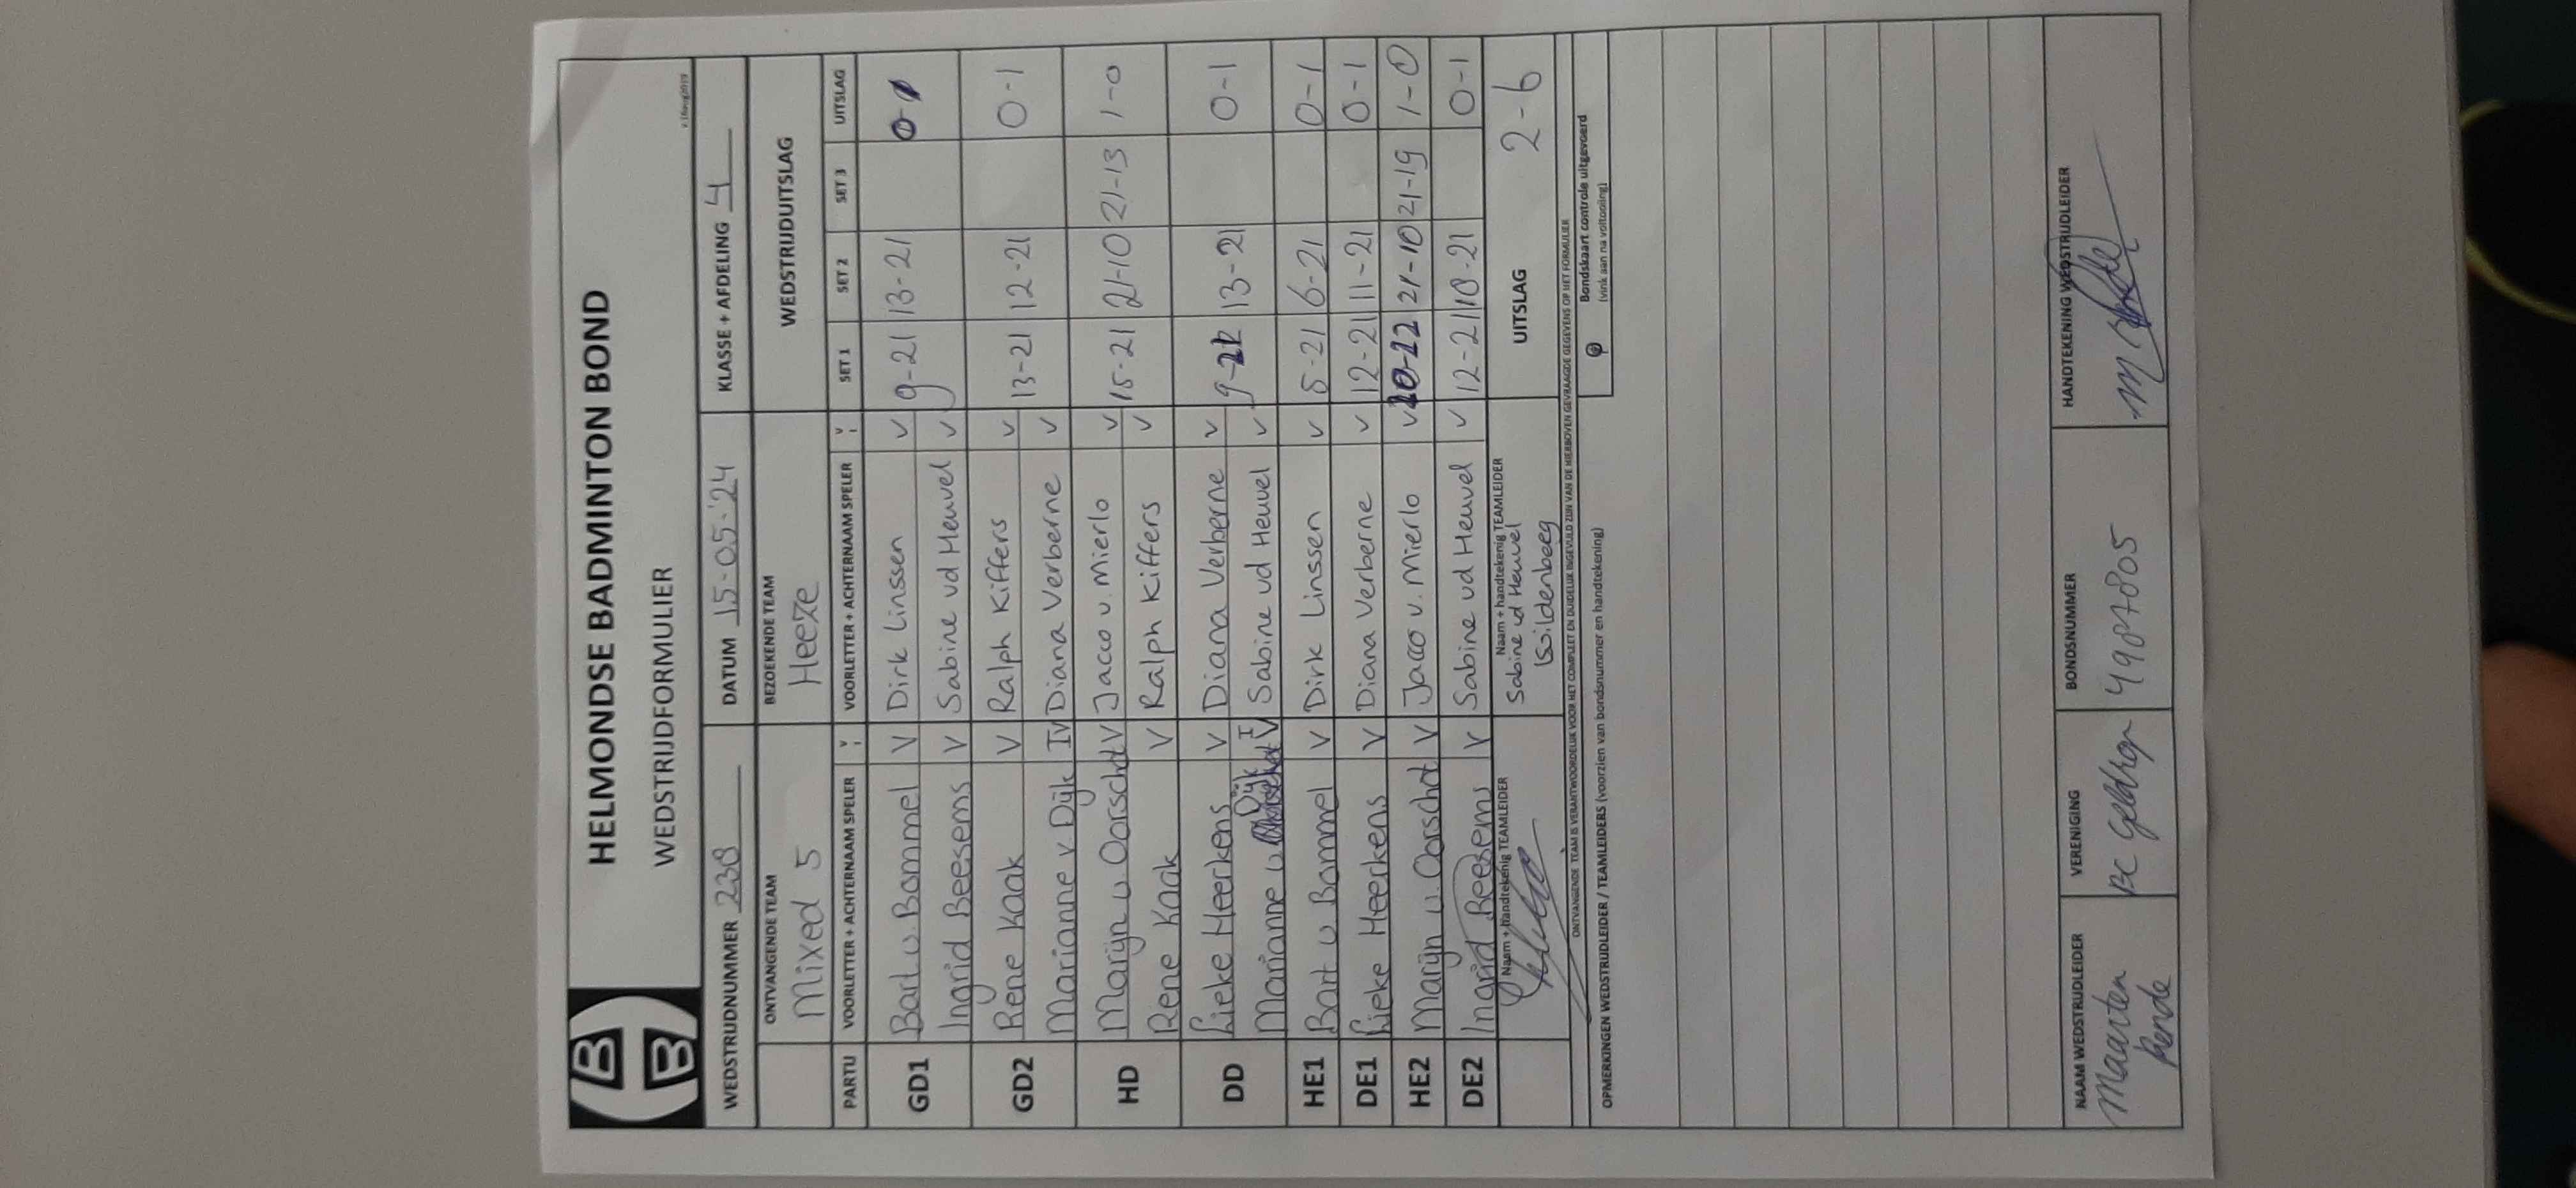 HELMONDSE BADMINTON BOND
WEDSTRIJDFORMULIER
v.16aug2019
WEDSTRIJDNUMMER 238 DATUM 15-05-'24 KLASSE + AFDELING 4
ONTVANGENDE TEAM BEZOEKENDE TEAM WEDSTRIJDUITSLAG
Mixed 5 Heeze
PARTIJ VOORLETTER + ACHTERNAAM SPELER V VOORLETTER + ACHTERNAAM SPELER V SET 1 SET 2 SET 3 UITSLAG
GD1 Bart v. Bommel V Dirk Linssen V 9-21 13-21 0-1
Ingrid Beesems V Sabine vd Heuvel V
GD2 Rene Kaak V Ralph Kiffers V 13-21 12-21 0-1
Marianne v Dijk V Diana Verberne V
HD Marijn v. Oorschot V Jacco v. Mierlo V 15-21 21-10 21-13 1-0
Rene Kaak V Ralph Kiffers V
DD Lieke Heerkens V Diana Verberne V 9-21 13-21 0-1
Marianne v Dijk V Sabine vd Heuvel V
HE1 Bart v Bommel V Dirk Linssen V 5-21 6-21 0-1
DE1 Lieke Heerkens V Diana Verberne V 12-21 11-21 0-1
HE2 Marijn v. Oorschot V Jacco v. Mierlo V 20-22 21-10 21-19 1-0
DE2 Ingrid Beesems V Sabine vd Heuvel V 12-21 10-21 0-1
Naam + handtekenig TEAMLEIDER Naam + handtekenig TEAMLEIDER UITSLAG 2-6
Sabine vd Heuvel
ONTVANGENDE TEAM IS VERANTWOORDELIJK VOOR HET COMPLEET EN DUIDELIJK INGEVULD ZIJN VAN DE HIERBOVEN GEVRAAGDE GEGEVENS OP HET FORMULIER
Bondskaart controle uitgevoerd
(vink aan na voltooiing)
OPMERKINGEN WEDSTRIJDLEIDER / TEAMLEIDERS (voorzien van bondsnummer en handtekening)
NAAM WEDSTRIJDLEIDER VERENIGING BONDSNUMMER HANDTEKENING WEDSTRIJDLEIDER
Maarten BC Geldrop